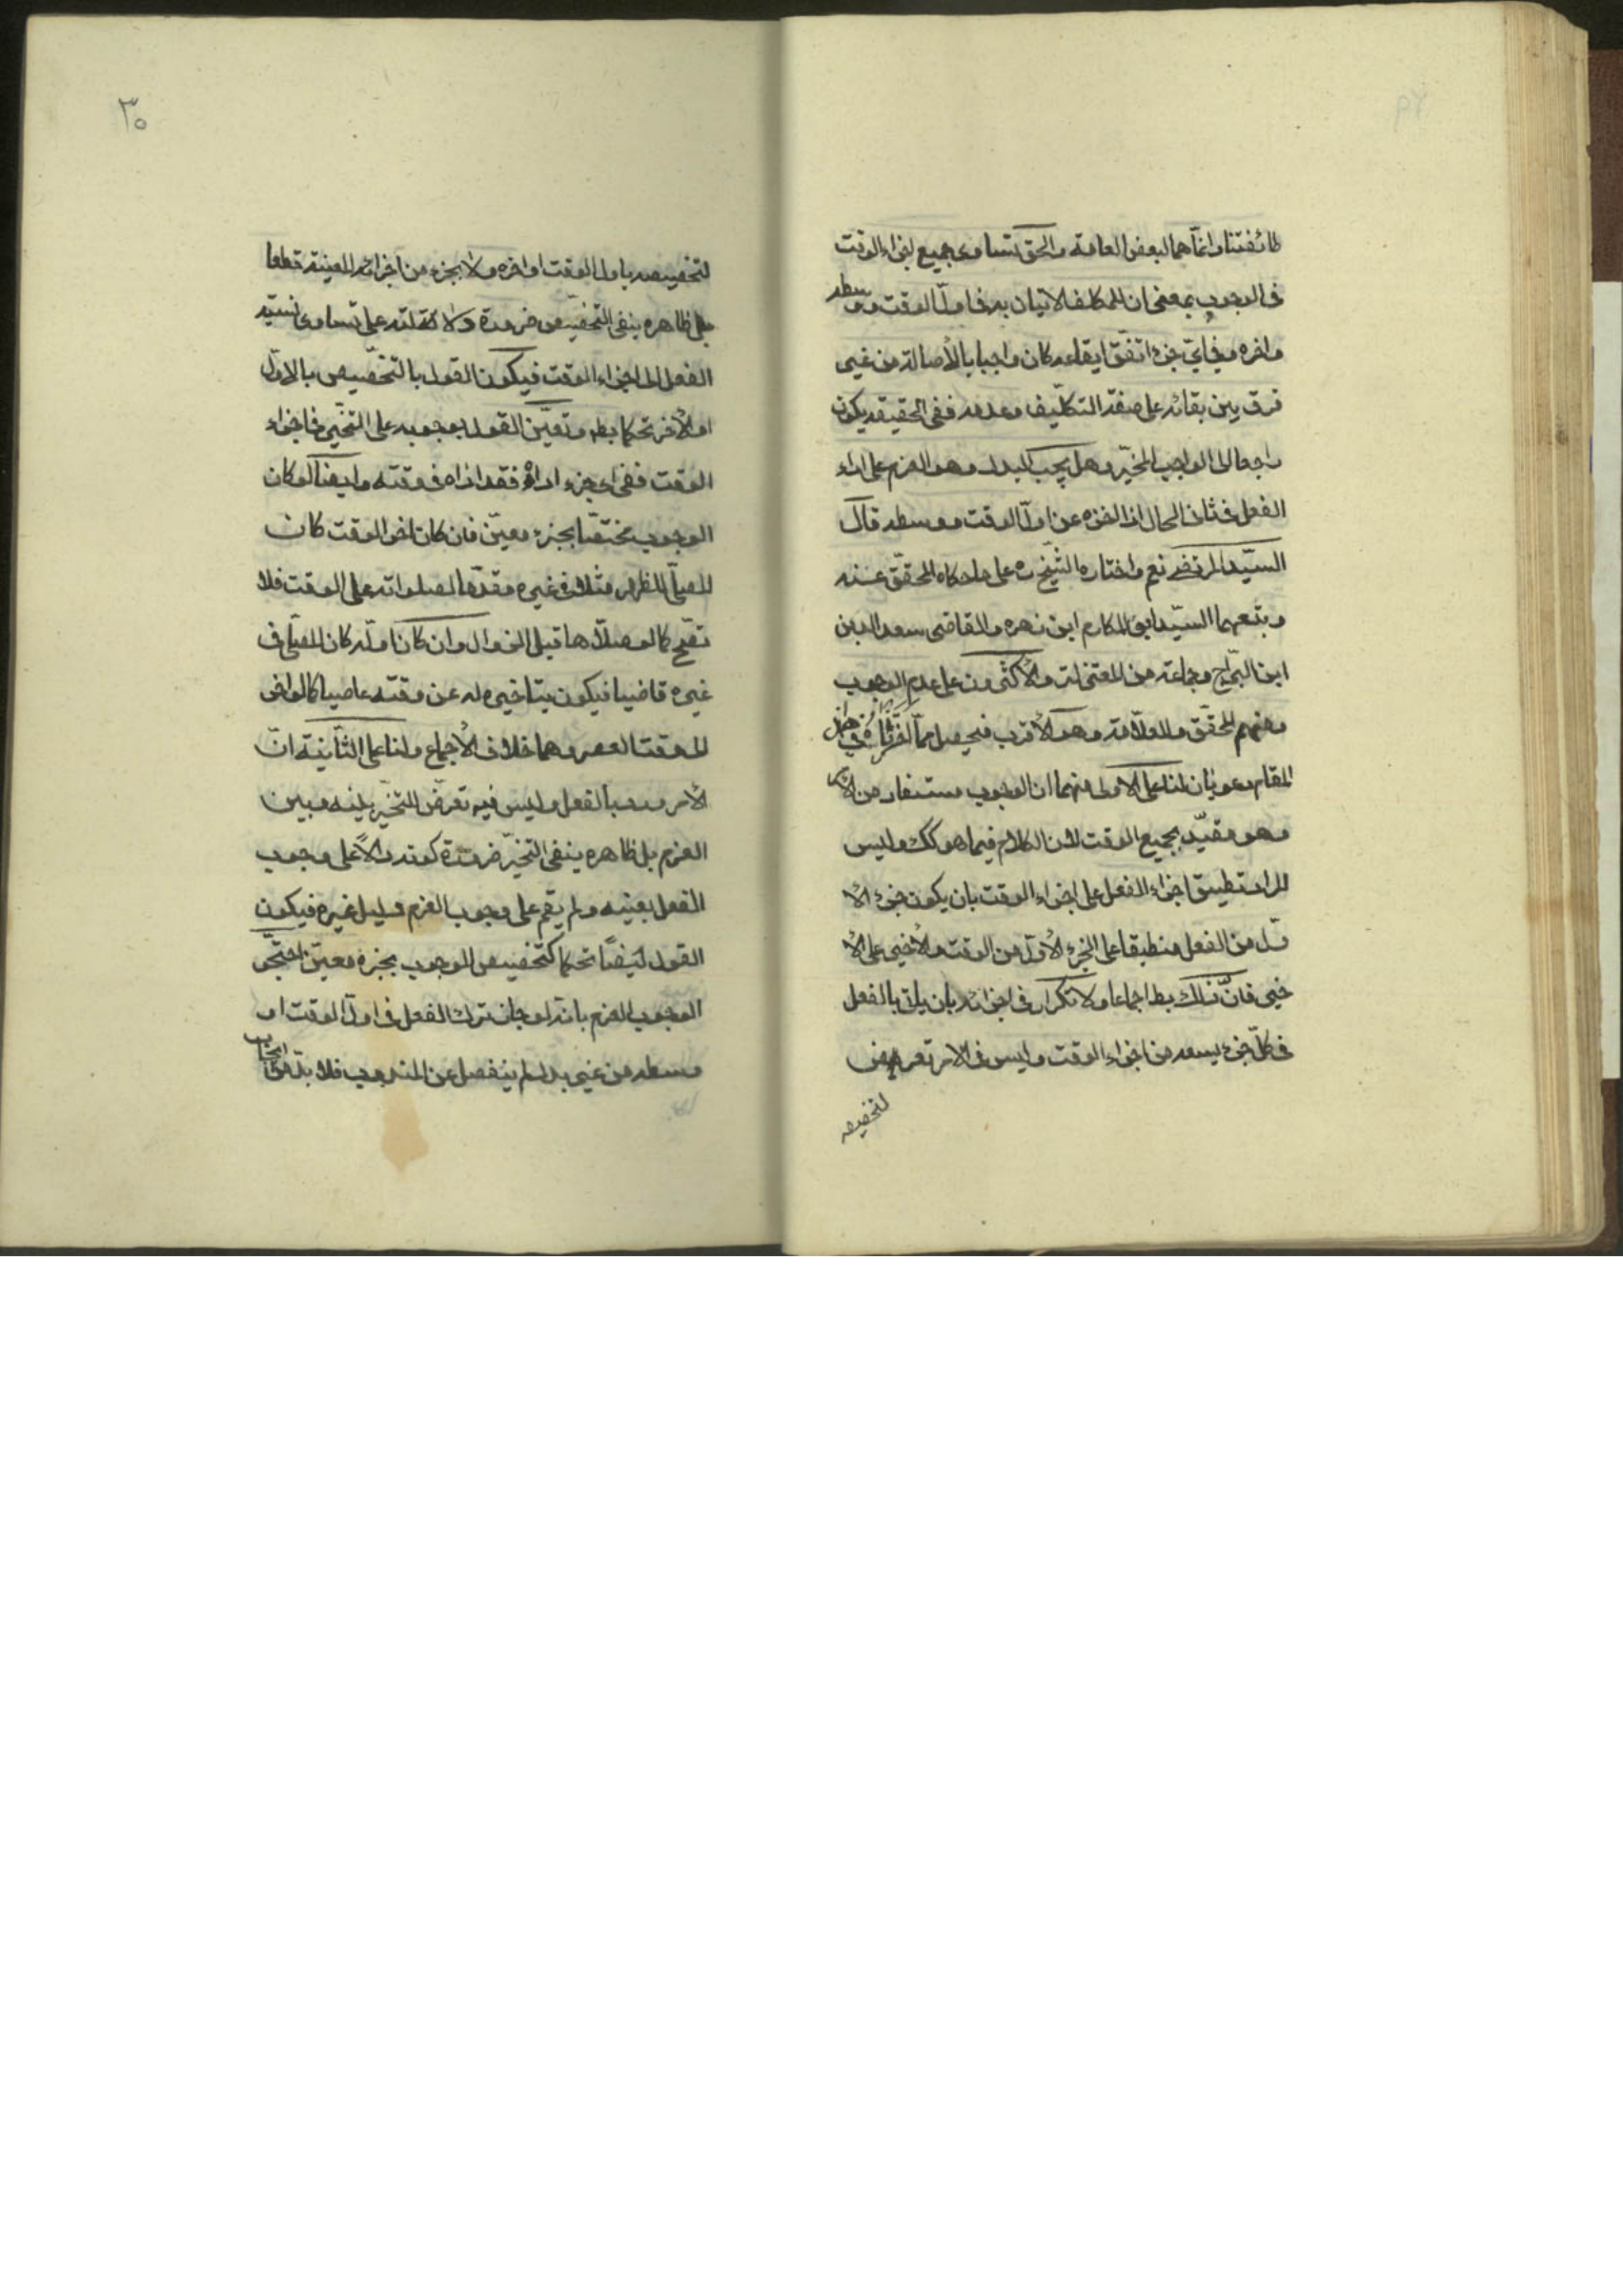 طائفتنا وانما هما لبعض العامة والحق تساوى جميع اجزاء الوقت
فى الوجوب بمعنى ان للمكلف الاتيان به فى اول الوقت ووسطه
واخره وفى اىّ جزء اتفق ايقاعه كان واجبا بالأصالة من غير
فرق بين بقائه على صفة التكليف وعدمه ففى الحقيقه يكون
راجعا الى الواجب المخيّر وهل يجب البدل وهو العزم على اداء
الفعل فى ثانى الحال اذا اخره عن اول الوقت ووسطه قال
السيّد المرتضى نعم واختاره الشيخ ره على ما حكاه المحقق عنه
وتبعهما السيّد ابو المكارم ابن زهره والقاضى سعد الدين
ابن البرّاج وجماعة من المعتزلة والأكثرون على عدم الوجوب
ومنهم المحقّق والعلامة وهو الأقرب فيحصل مما اخترناه فى
المقام دعويان لنا على الاولى منهما ان الوجوب مستفاد من الامر
وهو مقيّد بجميع الوقت لان الكلام فيما هو كك وليس
المراد تطبيق اجزاء الفعل على اجزاء الوقت بان يكون جزء الا
ول من الفعل منطبقا على الجزء الأول من الوقت والأخير على الأ
خير فانّ ذلك بط اجماعا ولا تكرار فى اجزائه بان ياتى بالفعل
فى كلّ جزء يسعه من اجزاء الوقت وليس فى الامر تعرض
لتخصيصه
٣٠
لتخصيصه باول الوقت او اخره ولا بجزء من اجزائه المعينة قطعا
بل ظاهره ينفى التخصيص ضرورة دلالته على تساوى نسبة
الفعل الى اجزاء الوقت فيكون القول بالتخصيص بالاوّل
او الأخر تحكما بط وتعيّن القول بوجوبه على التخيير فى اجزاء
الوقت ففى اى جزء اداه فقد اداه فى وقته وايضا لو كان
الوجوب مختصّا بجزء معيّن فان كان اخر الوقت كان
المصلّى للظهر مثلا فى غيره مقدّما لصلواته على الوقت فلا
تصح كما لو صلاها قبل الزوال وان كان اوله كان المصلّى فى
غيره قاضيا فيكون بتاخيره له عن وقته عاصيا كما لو اخر
الى وقت العصر وهما خلاف الأجماع ولنا على الثّانية انّ
الأمر ورد بالفعل وليس فيه تعرض للتخيير بينه وبين
العزم بل ظاهره ينفى التخيير ضرورة كونه دالاًّ على وجوب
الفعل بعينه ولم يقم على وجوب العزم دليل غيره فيكون
القول ايضًا تحكما كتخصيص الوجوب بجزء معيّن احتجّ
الوجوب العزم بانه لو جاز ترك الفعل فى اول الوقت او
وسطه من غير بدل لم ينفصل عن المندوب فلا بدّ من ايجاب